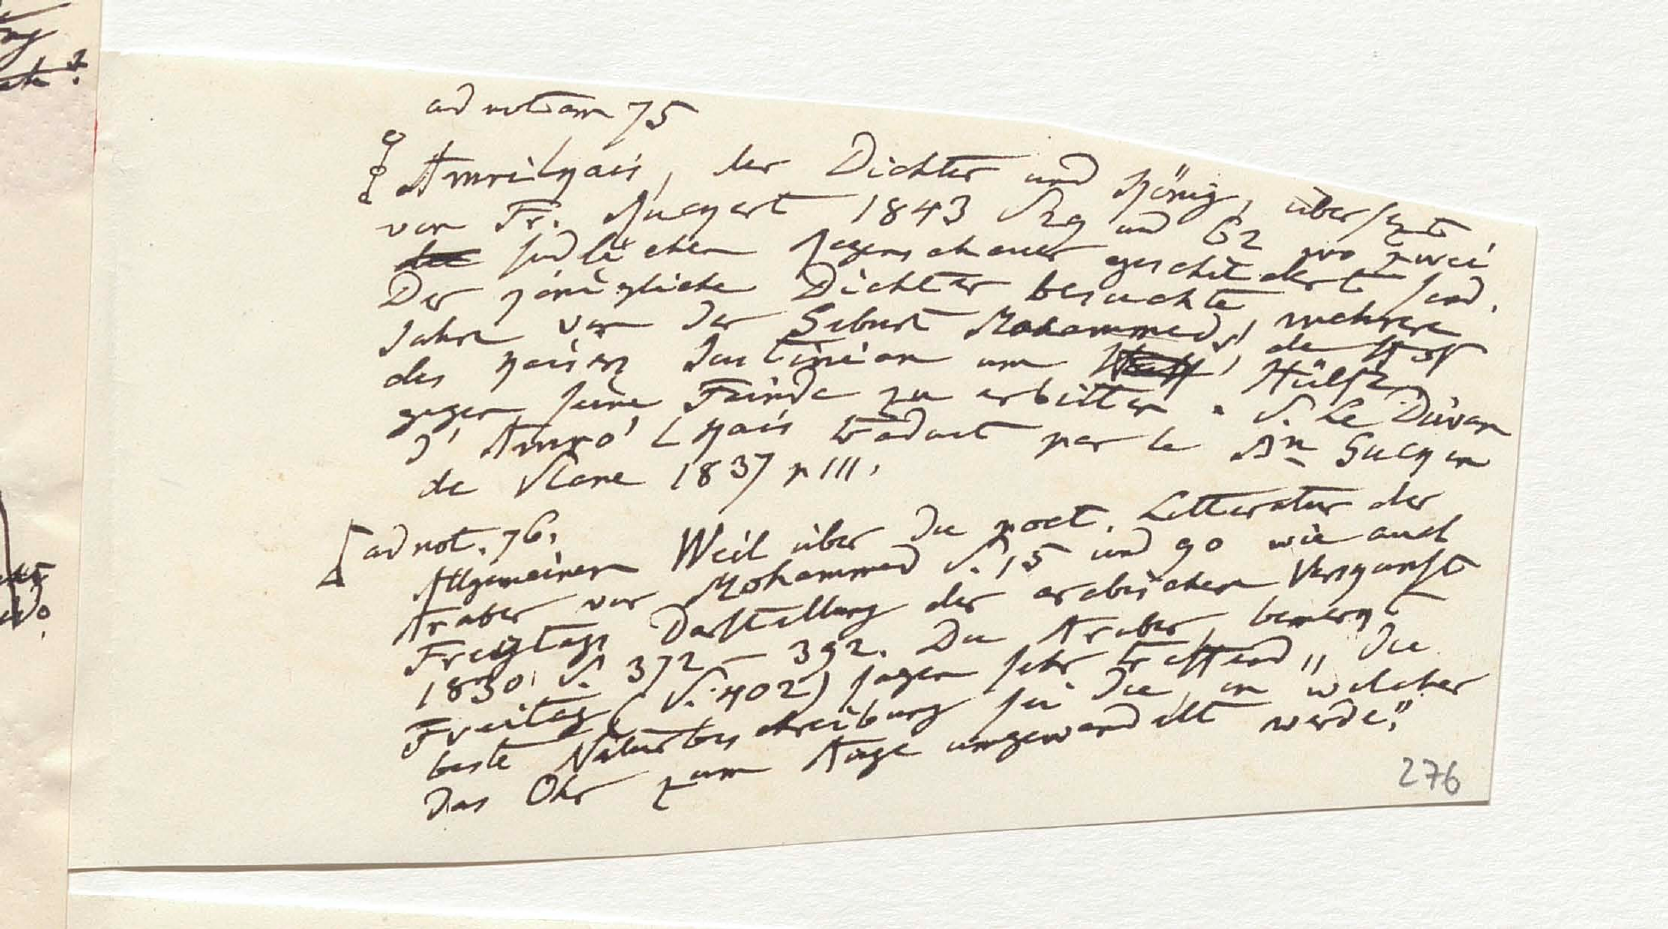 ad notam 75
Amrilkais, der Dichter und König, übersezt
von Fr. Rückert 1843 S. 29 und 62 wo zwei
südlichen Regenschauer geschildert sind.
Der königliche Dichter besuchte, mehrere
Jahre vor der Geburt Mohammeds, den Hof
des Kaiser Justinian um Hülfe
gegen seine Feinde zu erbitten. S. Le Diwan
d'Amro'lkais traduit par le Bn Guckin
de Slane 1837 p 111.
ad not. 76.
Allgemeinen Weil über die poet. Litteratur der
Araber vor Mohammed S. 15 und 90 wie auch
Freytags Darstellung der arabischen Verskunst
1830 S. 372 – 392. Die Araber bemerkt
Freitag (S. 402) sagen sehr treffend „die
beste Naturbeschreibung sei die, in welcher
das Ohr zum Auge umgewandelt werde."
276